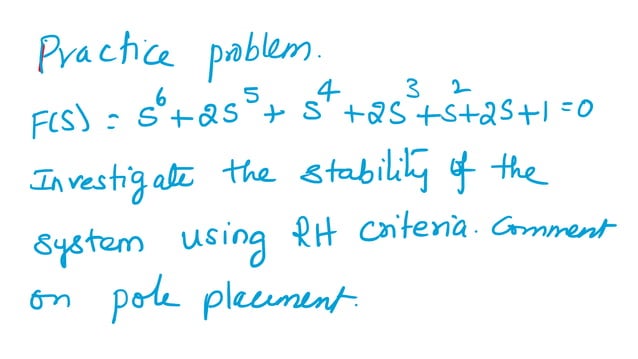 Practice problem.
F(S) = S⁶+2S⁵+ S⁴ +2S³+S²+2S+1=0
Investigate the stability of the
system using RH criteria. Comment
on pole placement.